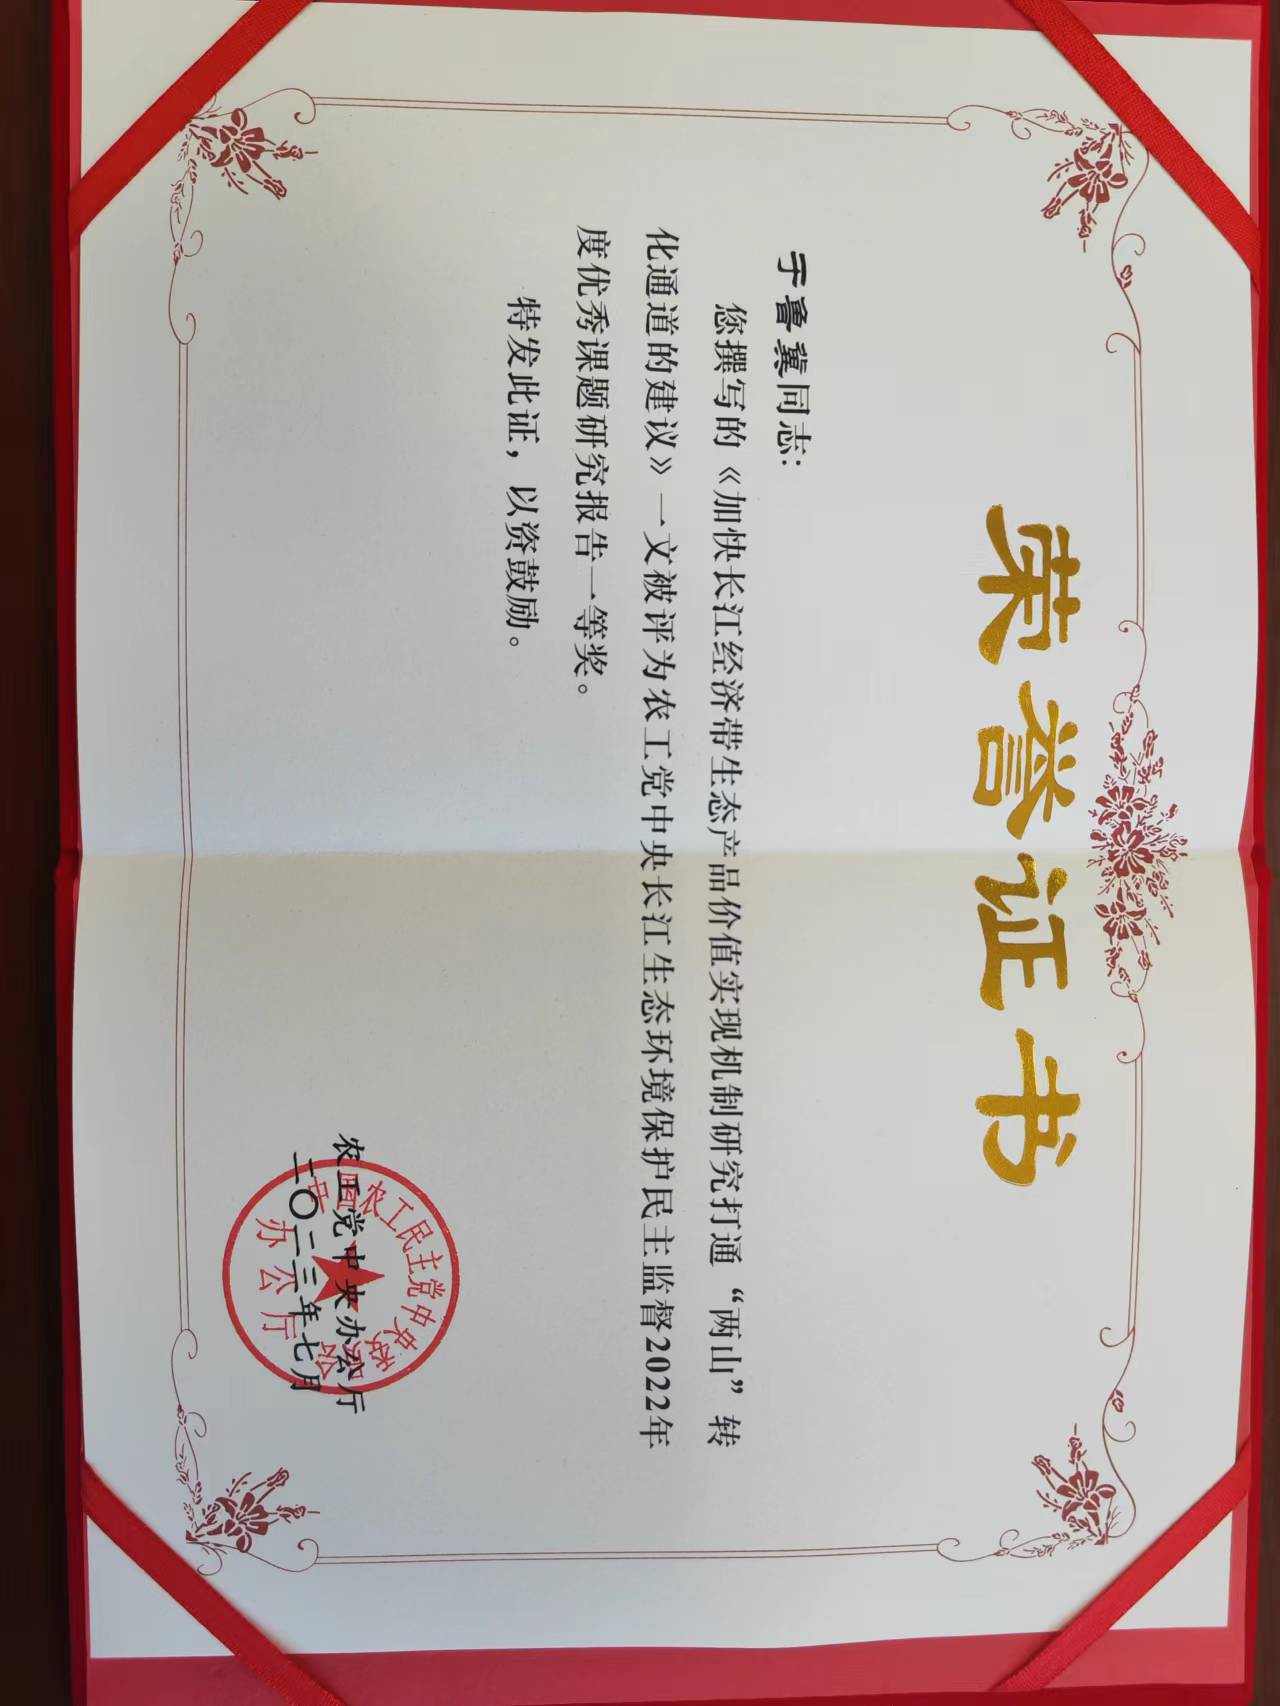 荣誉证书
于鲁冀同志:
您撰写的《加快长江经济带生态产品价值实现机制研究打通“两山”转
化通道的建议》一文被评为农工党中央长江生态环境保护民主监督2022年
度优秀课题研究报告一等奖。
特发此证，以资鼓励。
农工党中央办公厅
二〇二三年七月
中国农工民主党中央委员会
办公厅